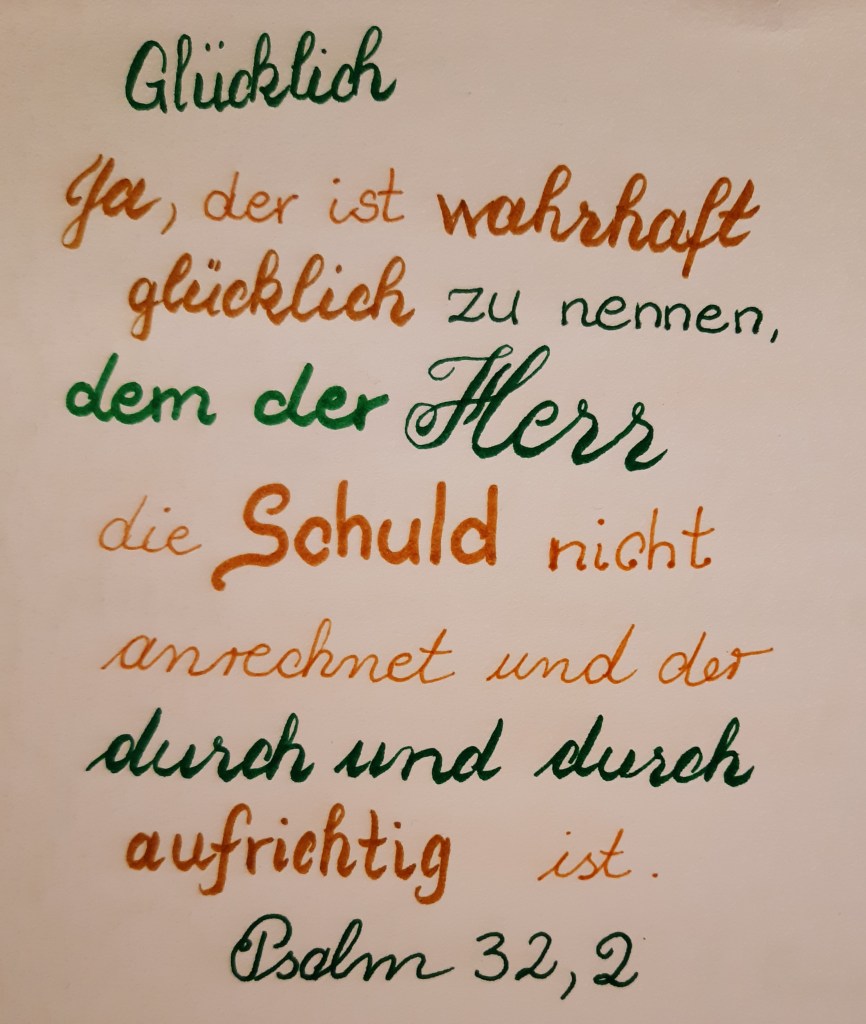 Glücklich
Ja, der ist wahrhaft
glücklich zu nennen,
dem der Herr
die Schuld nicht
anrechnet und der
durch und durch
aufrichtig ist.
Psalm 32, 2